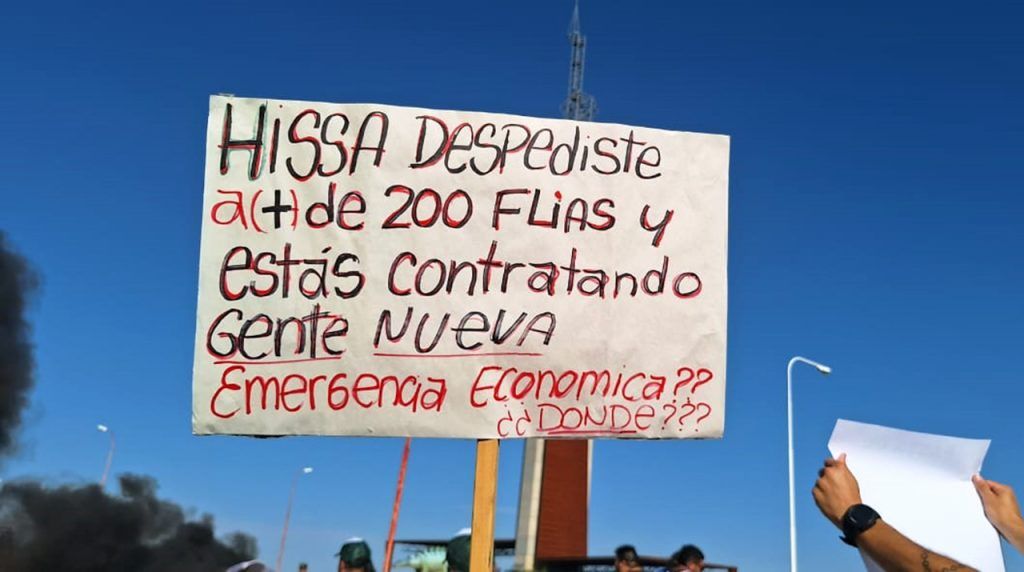 HISSA DESPEDISTE
a(+) de 200 FLIAS y
estás contratando
Gente NUEVA
Emergencia Economica??
¿¿DONDE???